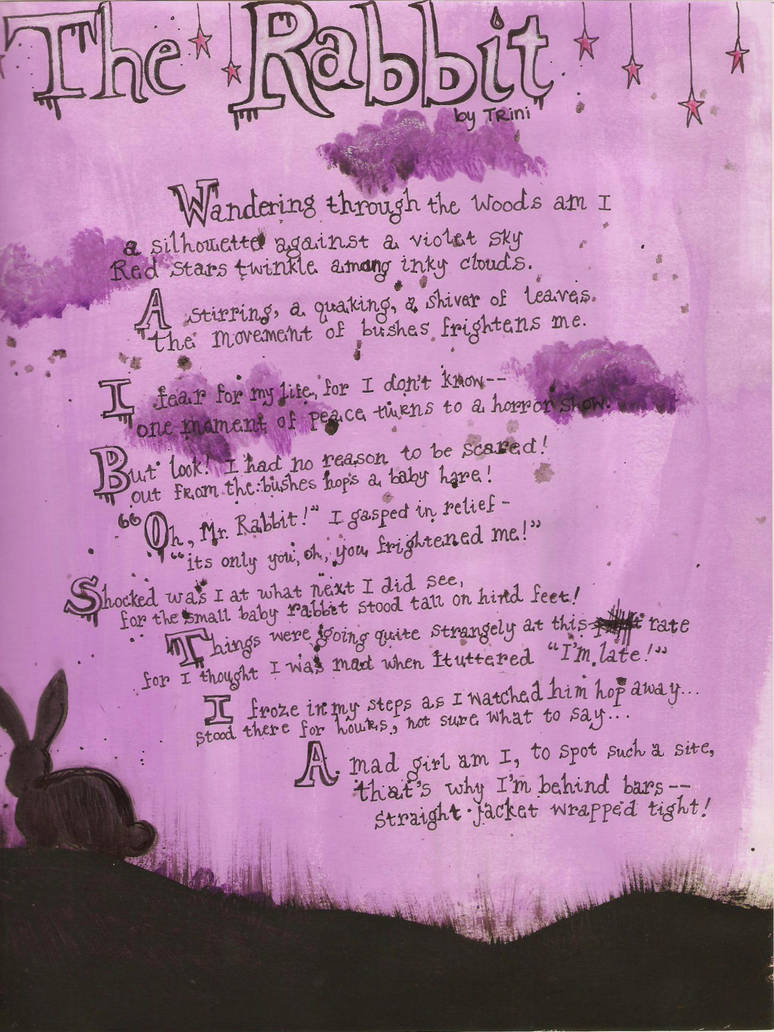 The Rabbit
by TRini
Wandering through the Woods am I
a silhouette against a violet sky
Red stars twinkle among inky clouds.
A stirring, a quaking, a shiver of leaves.
the movement of bushes frightens me.
I fear for my life, for I don't know--
one moment of peace turns to a horror show.
But look! I had no reason to be scared!
out from the bushes hops a baby hare!
"Oh, Mr. Rabbit!" I gasped in relief-
"its only you, oh, you frightened me!"
Shocked was I at what next I did see,
for the small baby rabbit stood tall on hind feet!
Things were going quite strangely at this rate
for I thought I was mad when it uttered "I'm late!"
I froze in my steps as I watched him hop away...
stood there for hours, not sure what to say...
A mad girl am I, to spot such a site,
that's why I'm behind bars--
straight-jacket wrapped tight!